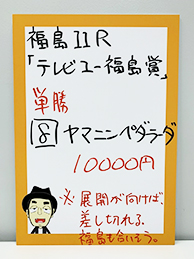 福島11R
「テレビユー福島賞」
単勝
⑧ ヤマニンペダラーダ
10000円
※展開が向けば、
差し切れる。
福島も合いそう。